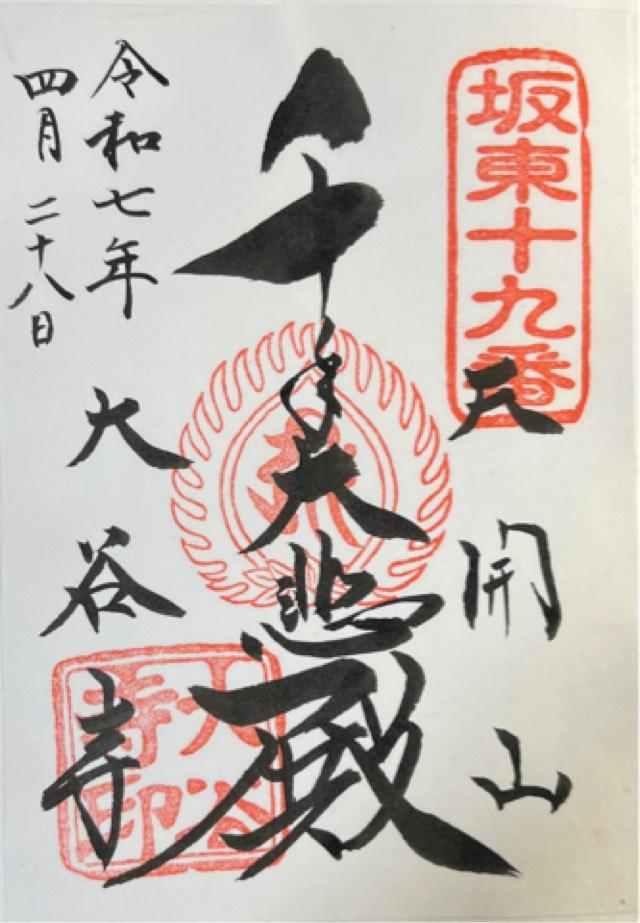 坂東十九番
天開山
千手大悲殿
令和七年
四月二十八日
大谷寺
大谷寺印